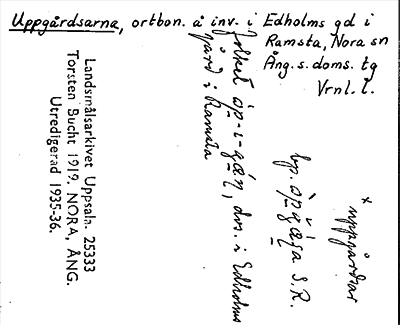 Uppgårdsarna, ortbon. å inv. i Edholms gd i
Ramsta, Nora sn
Ång. s. doms. tg
Vrnl. l.
× uppgårdar
bp. S.R.
folket dvs. i Edholms
gård i Ramsta
Landsmålsarkivet Uppsala. 25333
Torsten Bucht 1919. NORA, ÅNG.
Utredigerad 1935-36.